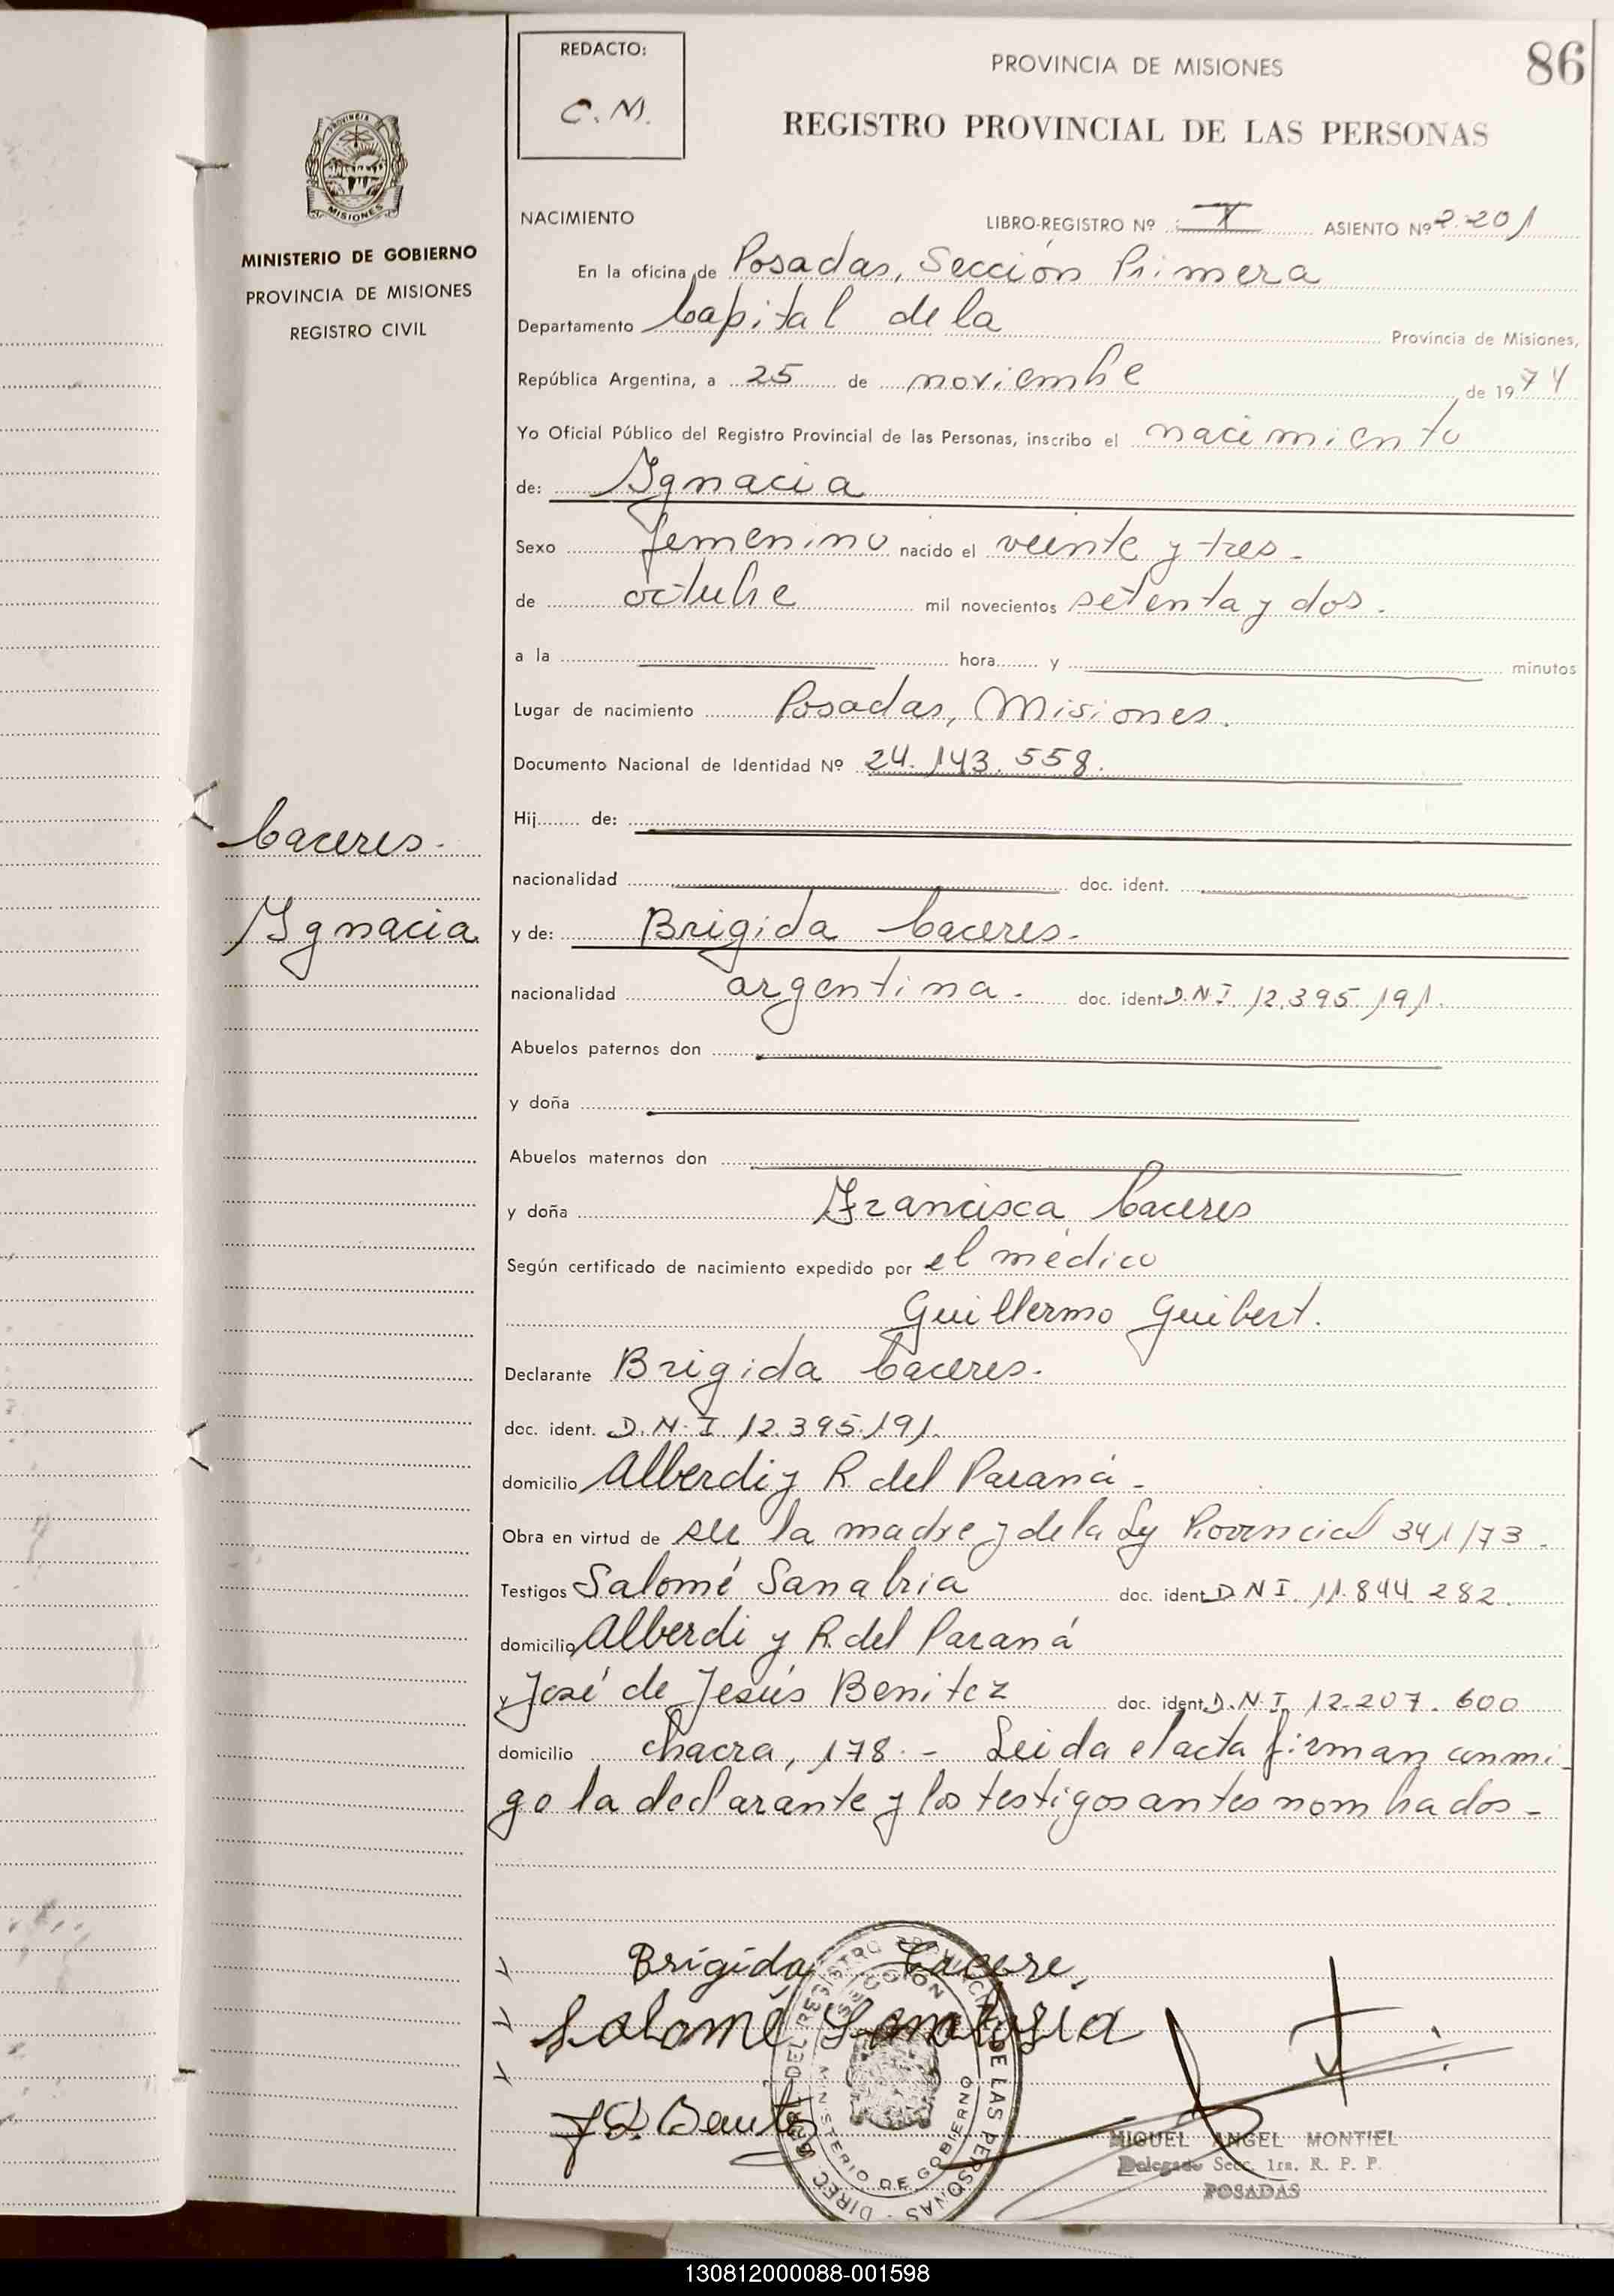 REDACTO:
C. M.
PROVINCIA DE MISIONES
86
REGISTRO PROVINCIAL DE LAS PERSONAS
PROVINCIA
MISIONES
MINISTERIO DE GOBIERNO
PROVINCIA DE MISIONES
REGISTRO CIVIL
NACIMIENTO LIBRO-REGISTRO Nº X ASIENTO Nº 2.201
En la oficina de Posadas, Sección Primera
Departamento Capital de la Provincia de Misiones,
República Argentina, a 25 de noviembre de 1974
Yo Oficial Público del Registro Provincial de las Personas, inscribo el nacimiento
de: Ygnacia
Sexo femenino nacido el veinte y tres -
de octubre mil novecientos setenta y dos.
a la hora y minutos
Lugar de nacimiento Posadas, Misiones.
Documento Nacional de Identidad Nº 24.143.558.
Hij de:
Caceres.
nacionalidad doc. ident.
Ygnacia
y de: Brigida Caceres-
nacionalidad argentina. doc. ident. D.N.I. 12.395.191.
Abuelos paternos don
y doña
Abuelos maternos don
y doña Francisca Caceres
Según certificado de nacimiento expedido por el médico
Guillermo Guibert.
Declarante Brigida Caceres.
doc. ident. D.N.I. 12.395.191.
domicilio Alberdi y R. del Paraná -
Obra en virtud de ser la madre y de la Ley Provincial 341/73 -
Testigos Salomé Sanabria doc. ident. D N I. 11.844 282.
domicilio Alberdi y R. del Paraná
y José de Jesús Benitez doc. ident. D.N.I. 12.207.600
domicilio chacra, 178. - Leida el acta firman conmi-
go la declarante y los testigos antes nombados -
Brigida Cacere.
Salomé Sanabria
DIREC. GRAL DEL REGISTRO PROVINCIAL DE LAS PERSONAS
MINISTERIO DE GOBIERNO
SECCION
MIGUEL ANGEL MONTIEL
Delegado Secc. 1ra. R. P. P.
POSADAS
130812000088-001598